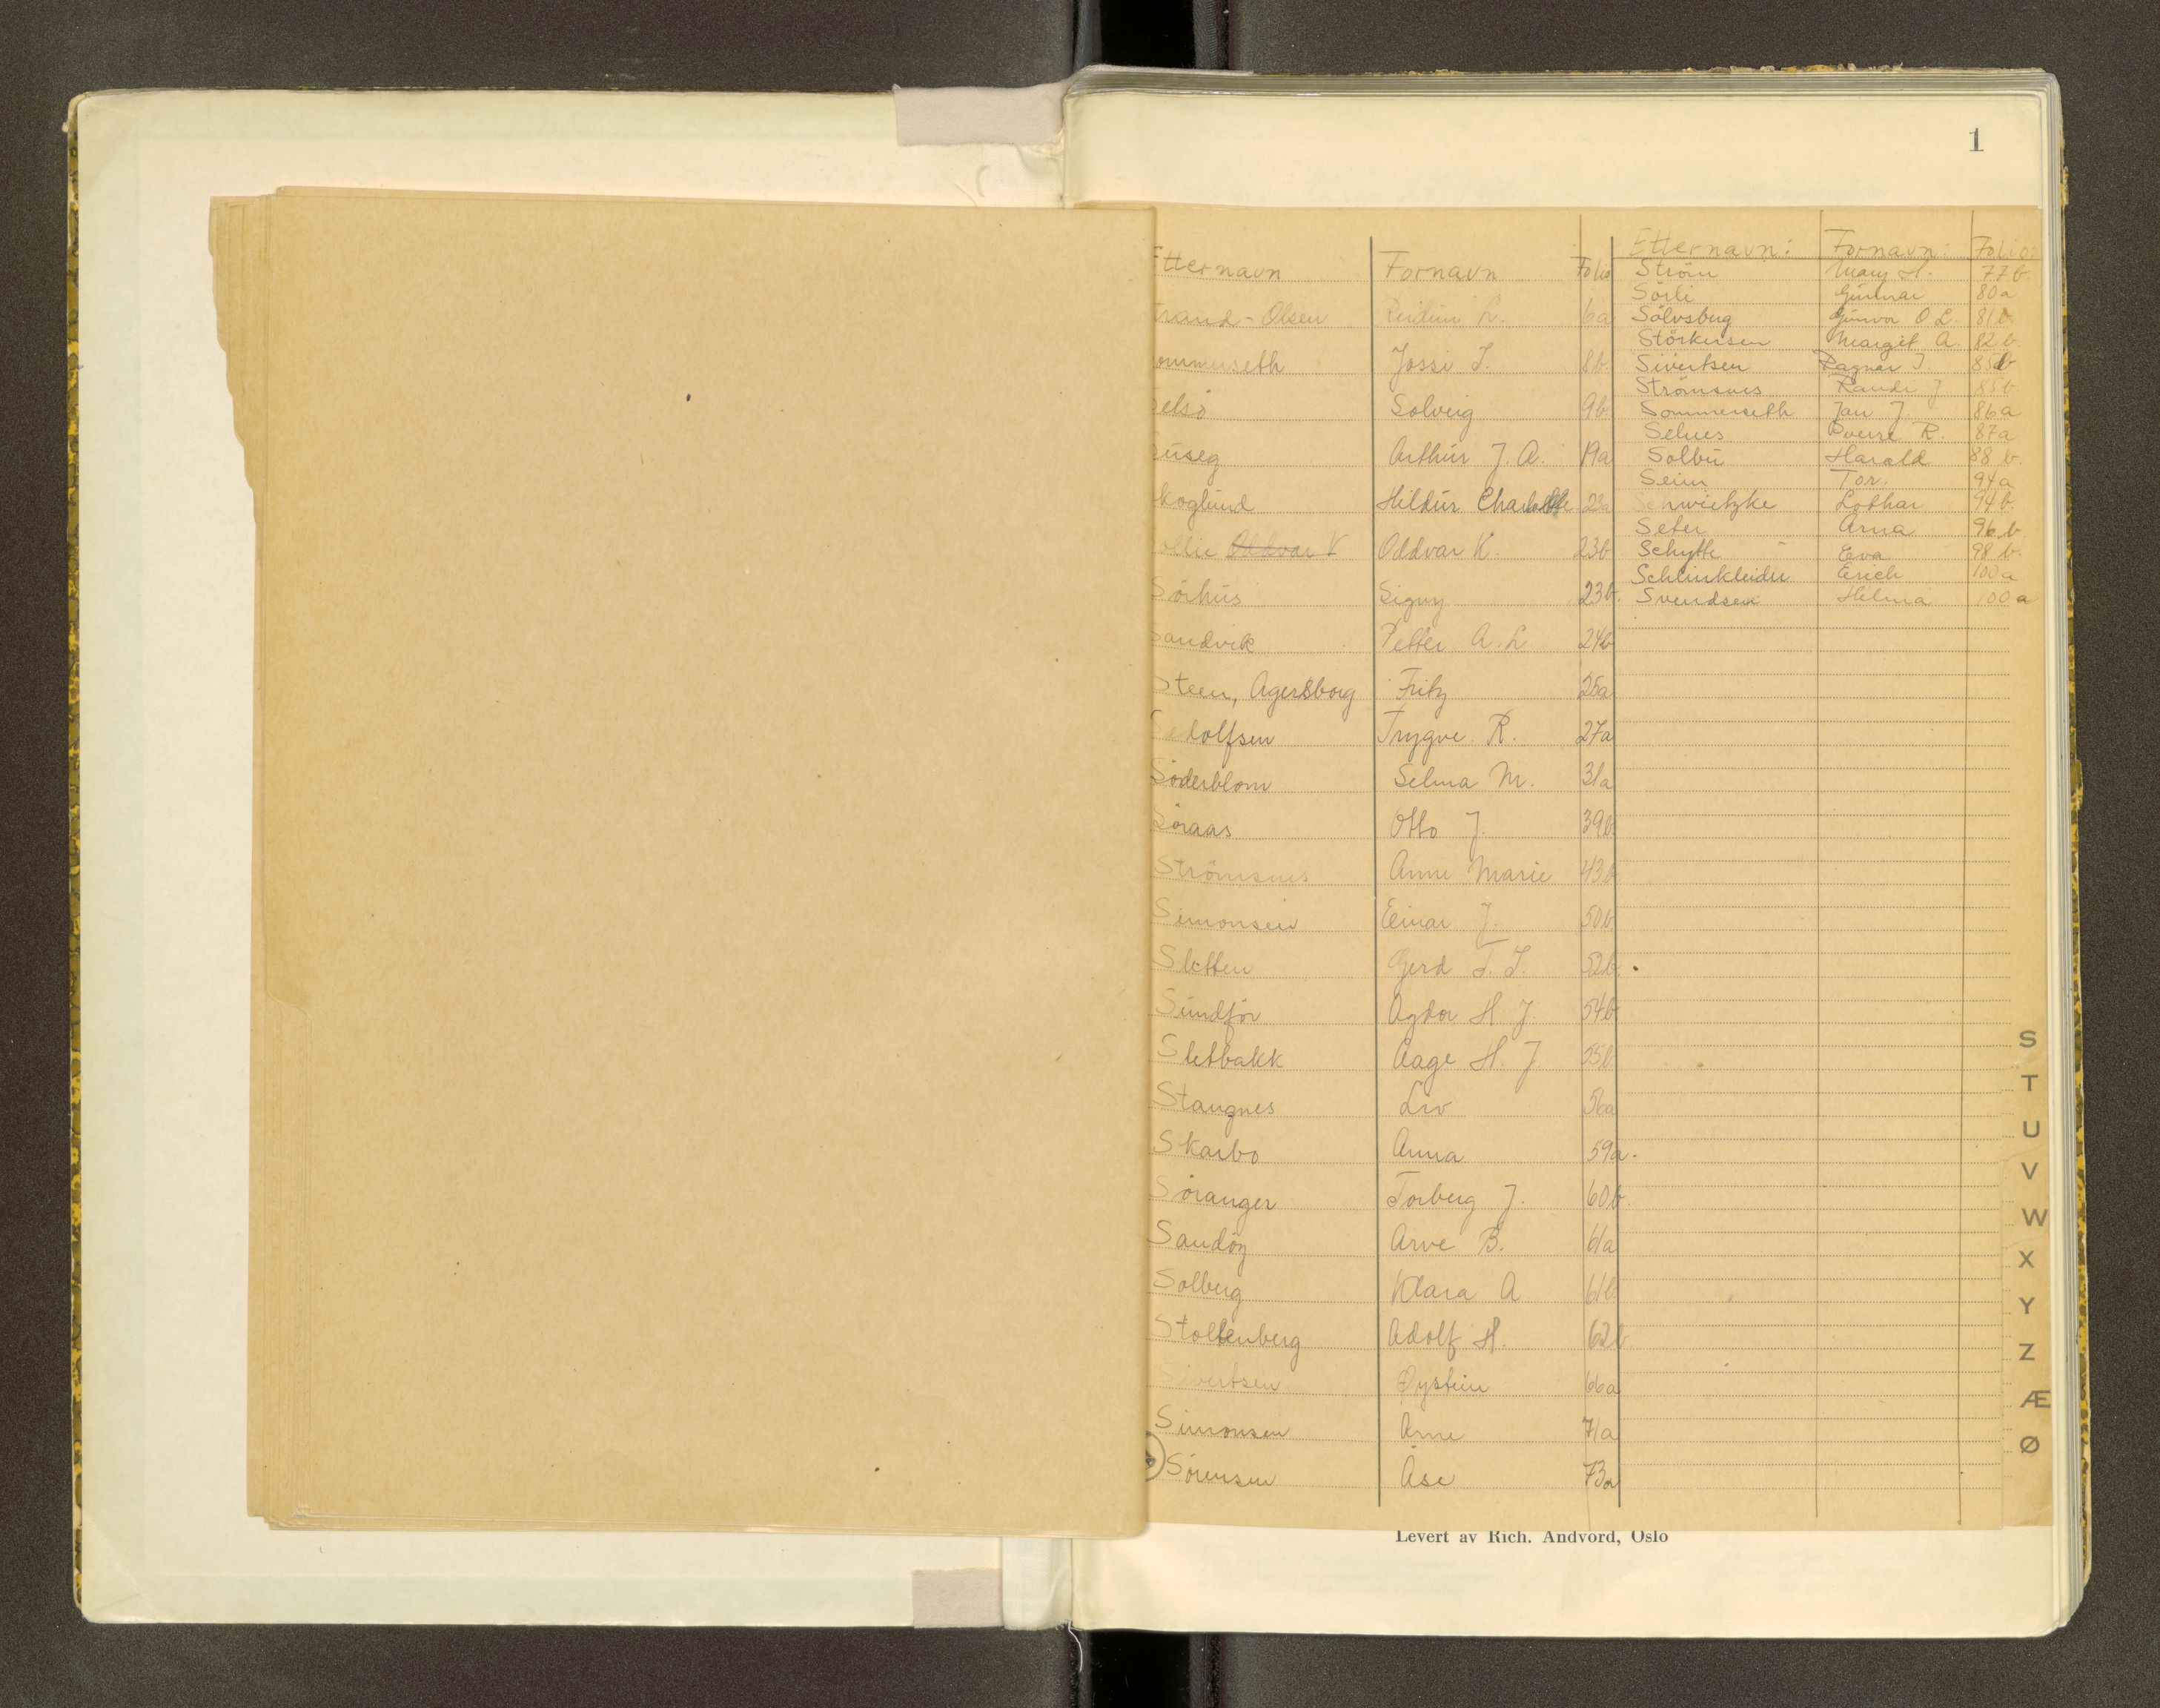 1
Etternavn Fornavn Folio
Strand-Olsen L. 6a
Sommerseth Jossi I. 8b
Selsö Solveig 9b
Suseg Arthur J. A. 19a
Skoglund Hildur Charlotte 23a
Oddvar K Oddvar K. 23b
Sörhus Signy 23b.
Sandvik Petter A. L 24b
Steen, Agersborg Fritz 25a
dolfsen Trygve R. 27a
Söderblom Selma M. 31a
Söraas Otto J. 39b
Strömsnes Anne Marie 43b
Simonsen Einar J. 50b
Sletten Gerd T. I. 52b.
Sundför Agdor H. J. 54b
Sletbakk Aage H. J. 55b
Stangnes Liv 56a
Skarbo Anna 59a.
Söranger Torberg J. 60b.
Sandöy Arve B. 61a
Solberg Klara A 61b
Stoltenberg Adolf H. 62b
Sivertsen Øystein 66a
Simonsen Arne 71a
Sörensen Åse 73a
Etternavn: Fornavn: Folio:
Ström Mary H. 77b
Sörli Gunnar 80a
Sölvsberg Gunvor O L. 81b
Störkersen Margit A. 82b.
Sivertsen Ragnar J. 85b
Strömsnes Randi J 85b
Sommerseth Jan J. 86a
Selnes Sverre R. 87a
Solbu Harald 88b.
Seim Tor. 94a
Schwietzke Lothar 94b.
Seter Arna 96b
Schytte Eva 98b.
Schlinkleider Erich 100a
Svendsen Helma 100a
S
T
U
V
W
X
Y
Z
Æ
Ø
Levert av Rich. Andvord, Oslo